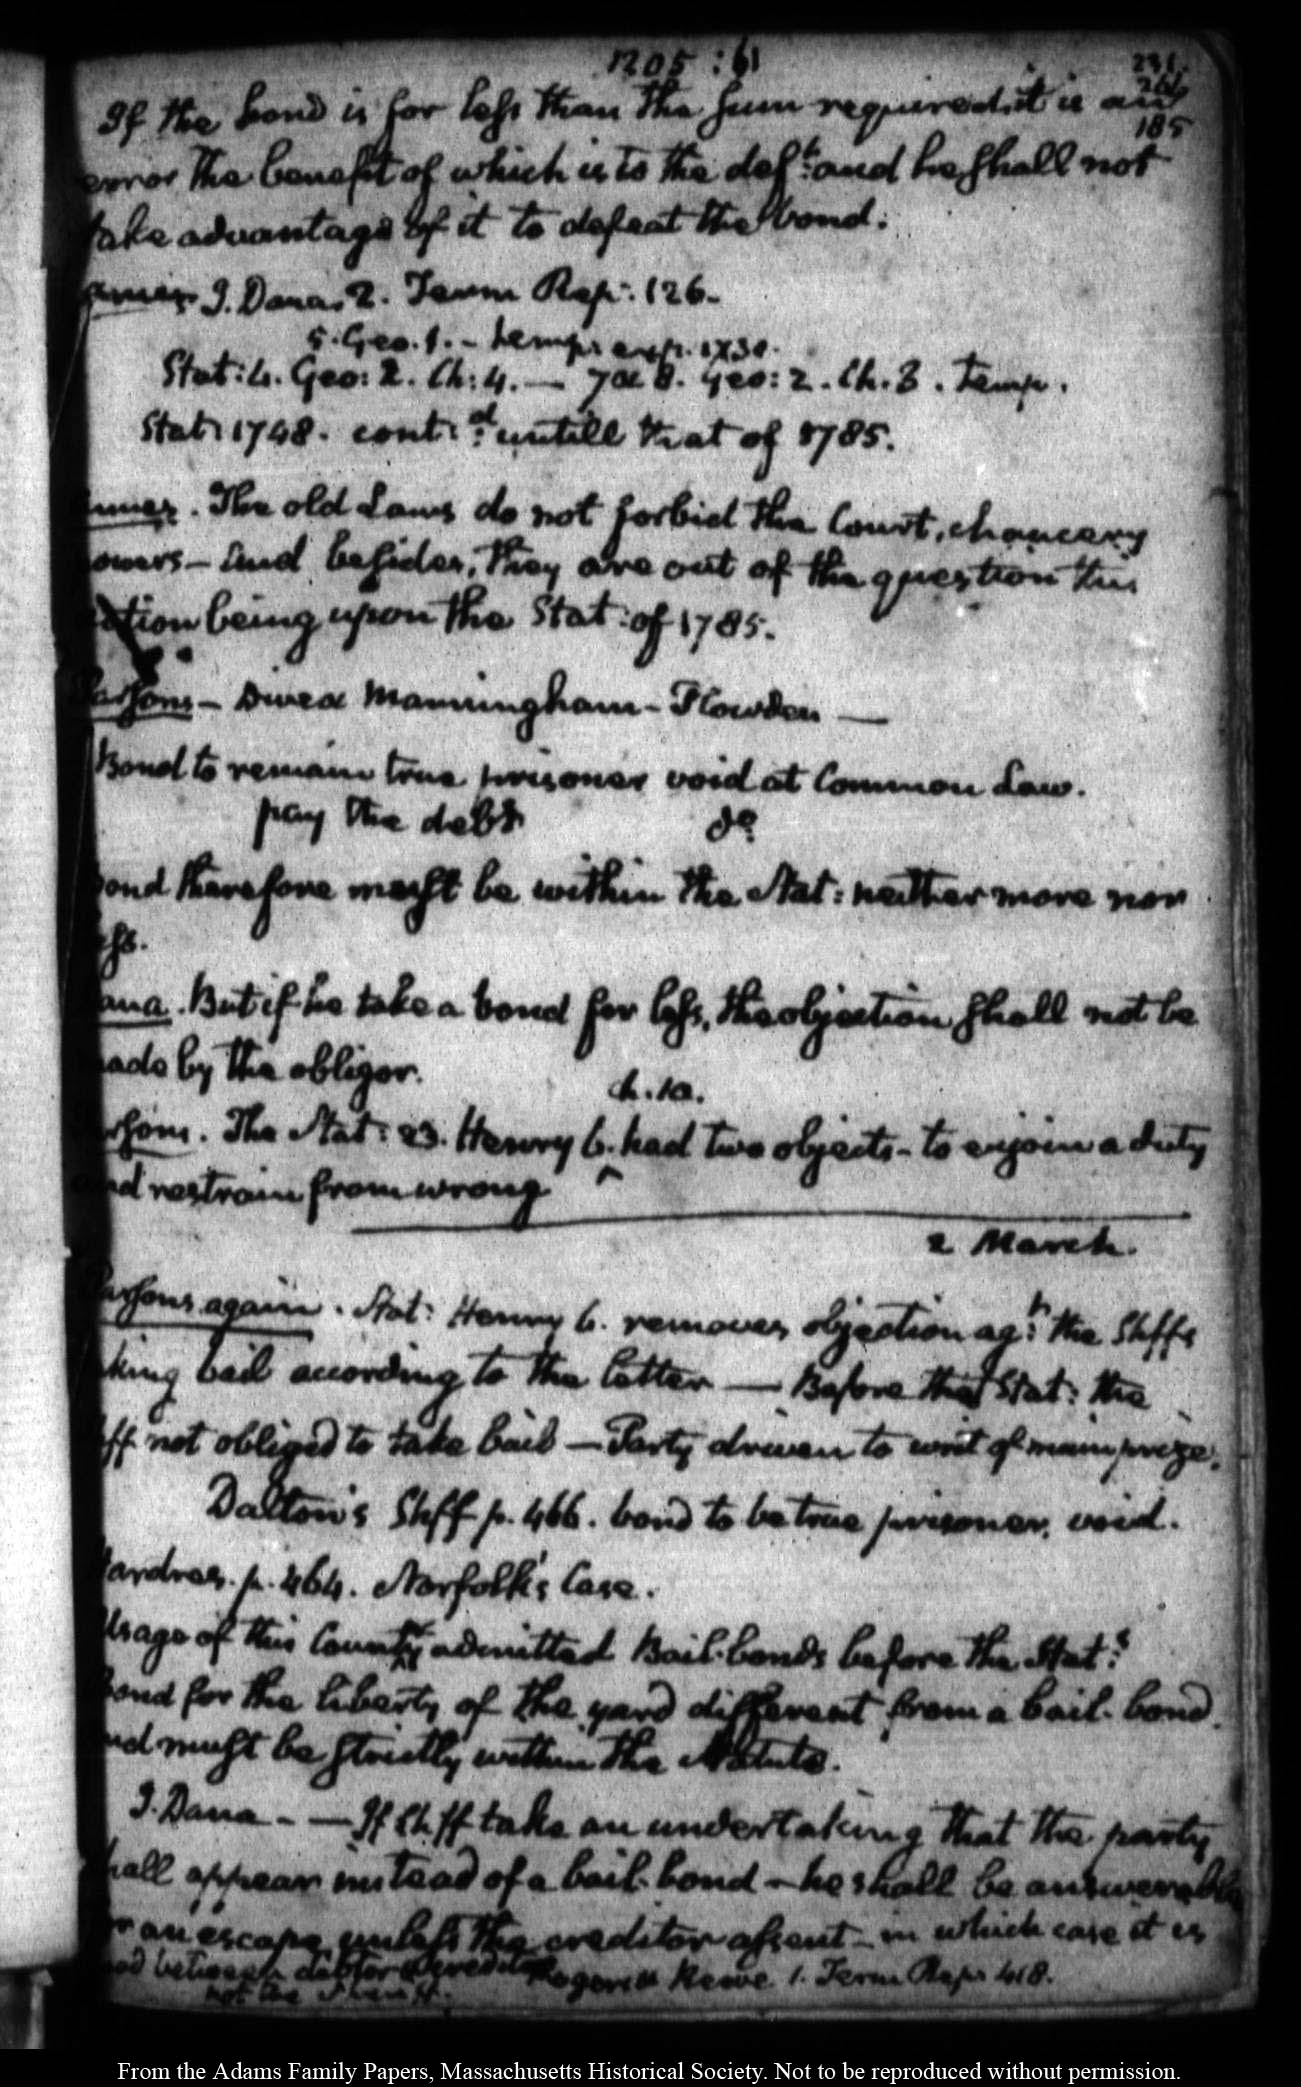 1205 : 61
231.
266
185
If the bond is for less than the sum required it is an
error the benefit of which is to the deft: and he shall not
take advantage of it to defeat the bond.
ames J. Dana. 2. Term Rep: 126.
5. Geo. 1. - temp: exp. 1730.
Stat: 4. Geo: 2. Ch: 4. — 7 & 8. Geo: 2. Ch. 3. temp.
Stat: 1748. cont:d untill that of 1785.
The old Laws do not forbid the Court, chancery
powers - And besides, they are out of the question this
action being upon the Stat: of 1785.
Parsons - Dive & Manningham - Plowden —
Bond to remain true prisoner void at Common Law.
pay the debt do
Bond therefore must be within the Stat: neither more nor
less.
Dana. But if he take a bond for less, the objection shall not be
made by the obligor.
ch. 10.
Parsons. The Stat: 23. Henry 6. ^ had two objects - to enjoin a duty
and restrain from wrong
2 March.
Parsons again. Stat: Henry 6. removes objection agt: the Shffs
taking bail according to the letter — Before that Stat: the
Shff not obliged to take bail — Party driven to writ of mainprize.
Dalton's Shff p. 466. bond to be true prisoner, void.
Hardres. p. 464. Norfolk's Case.
Usage of this County admitted Bail-bonds before the Stat:s
Bond for the liberty of the yard different from a bail-bond.
and must be strictly within the Statute.
J. Dana - — If Shff take an undertaking that the party
shall appear instead of a bail-bond - he shall be answerable
for an escape unless the creditor assent - in which case it is
good between debtor & creditor Rogers vs Reeve 1. Term Rep: 418.
not the Sheriff.
From the Adams Family Papers, Massachusetts Historical Society. Not to be reproduced without permission.